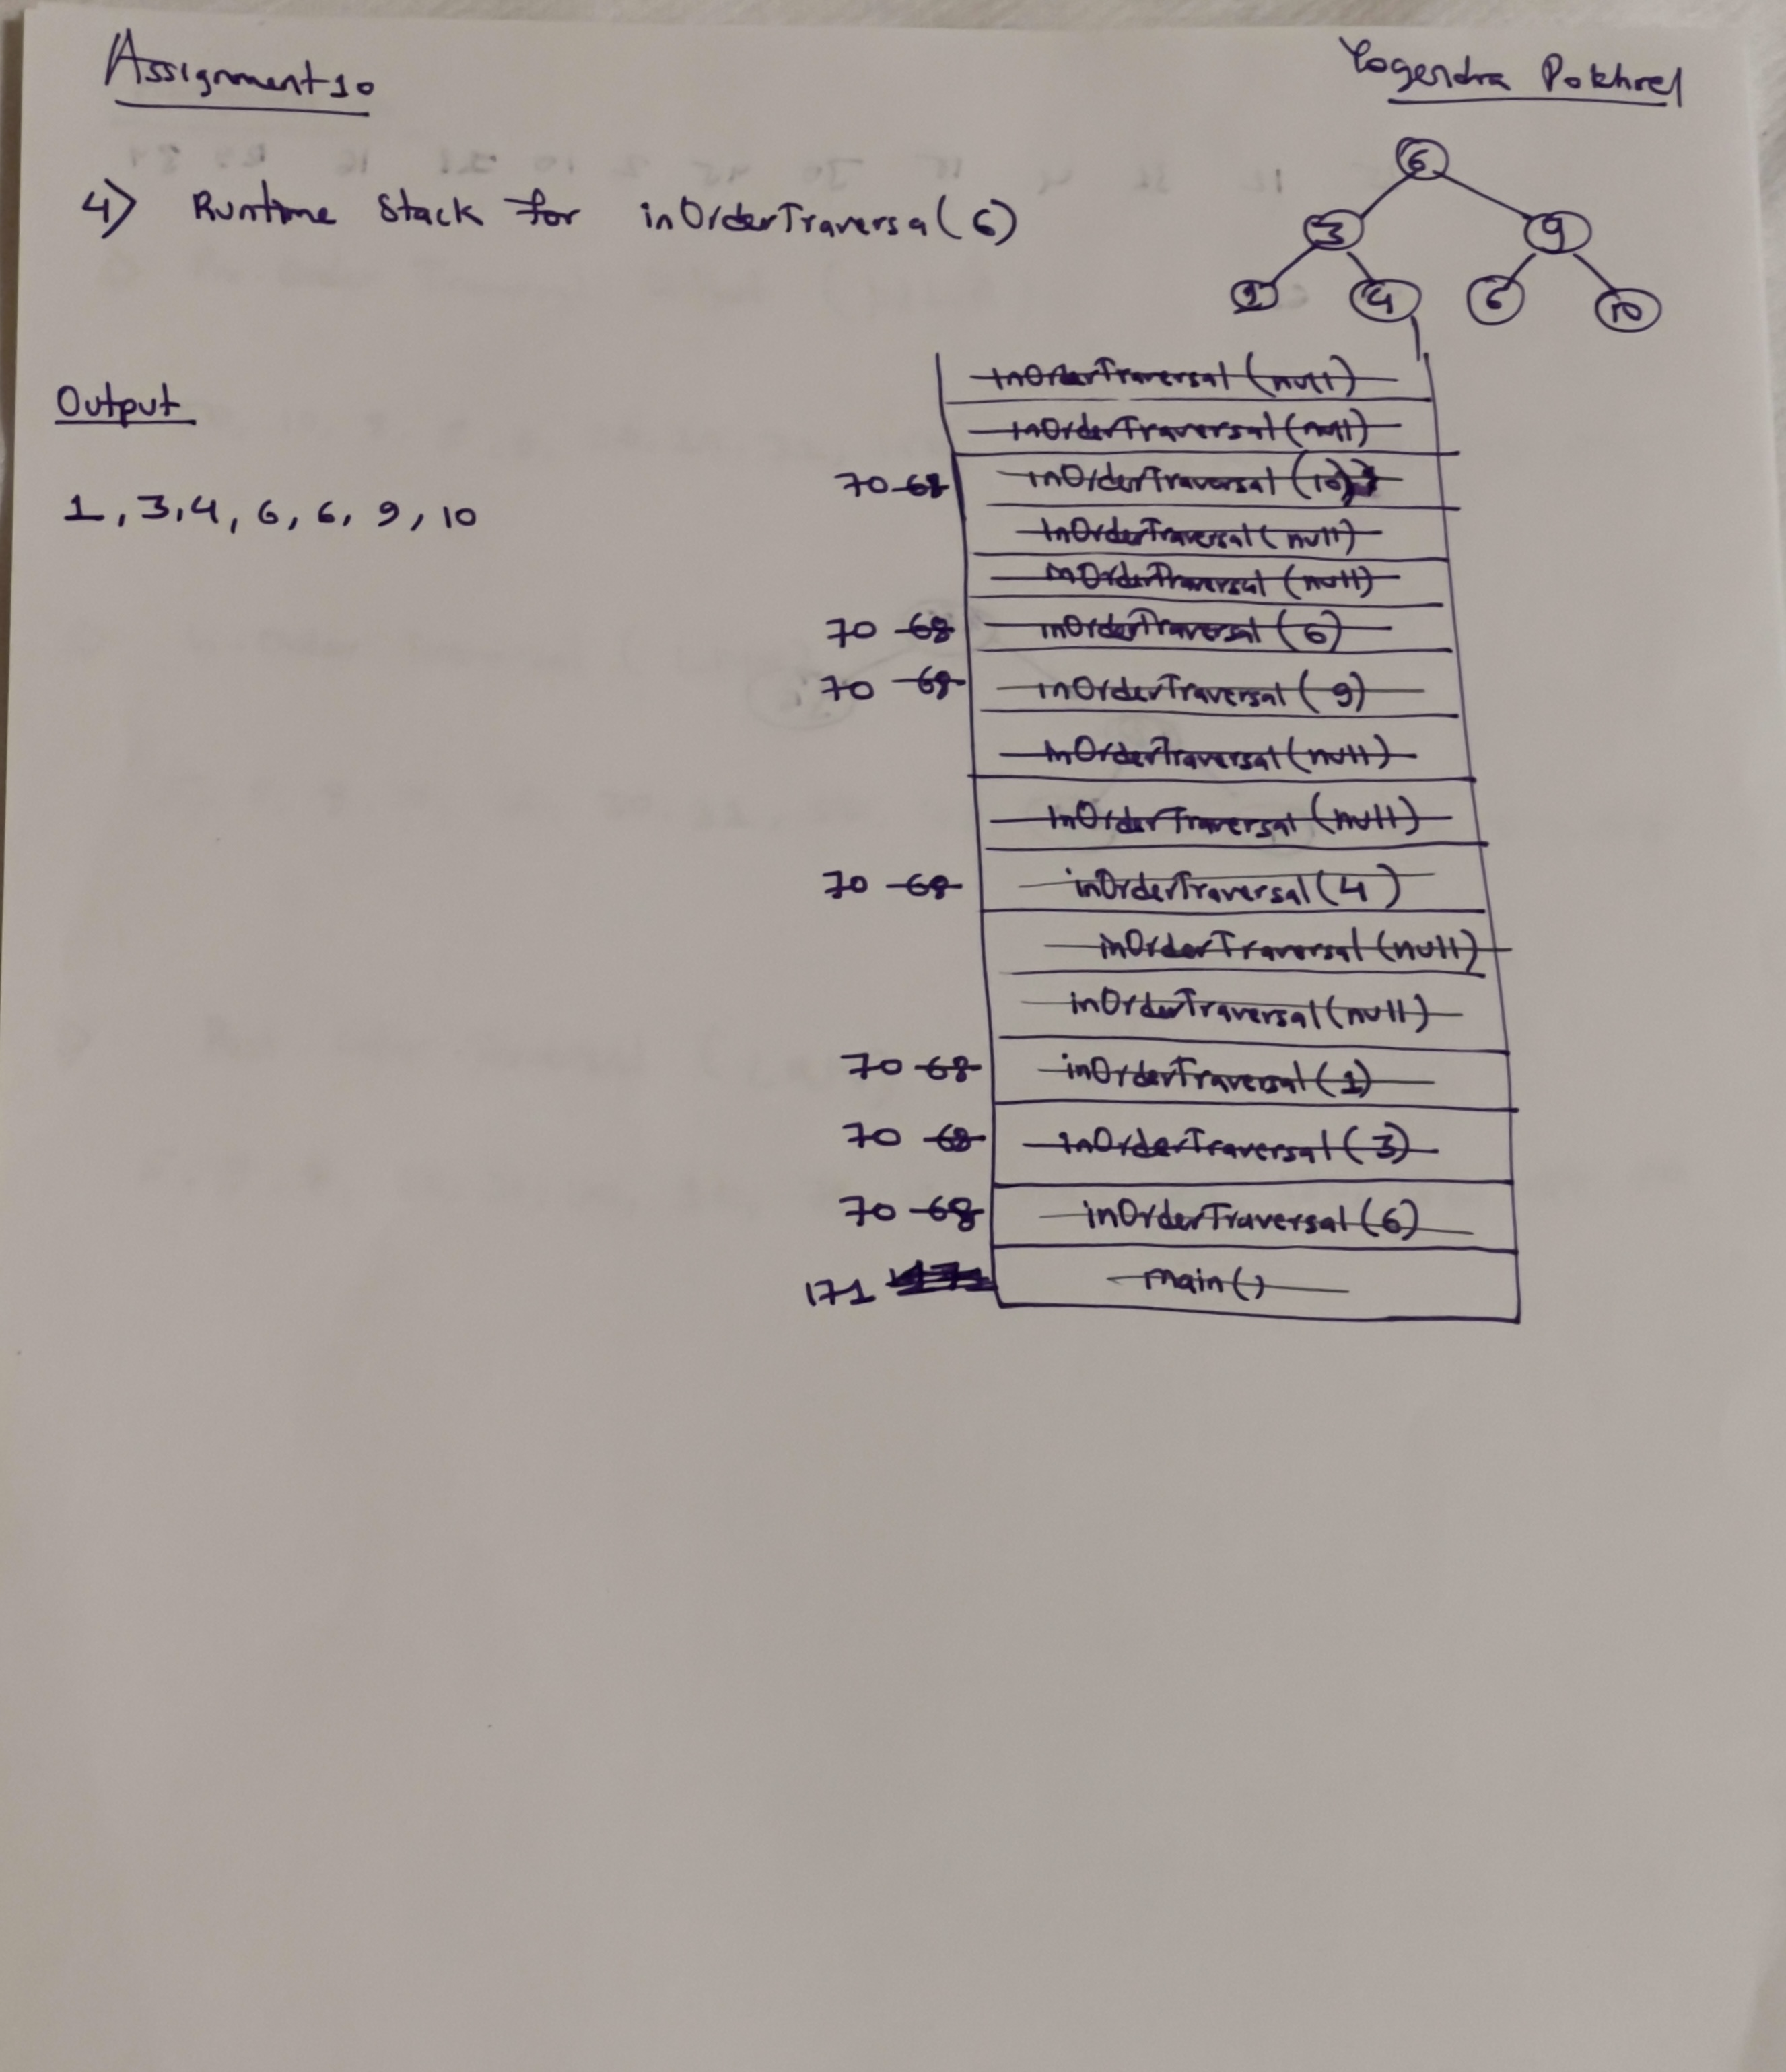 Assignment 10
Yogendra Pokhrel
4) Runtime Stack for inOrderTraversa(6)
6
3 9
4 6 10
Output
1, 3, 4, 6, 6, 9, 10
inOrderTraversal (null)
inOrderTraversal (null)
70 68 inOrderTraversal (10)
InOrderTraversal (null)
inOrderTraversal (null)
70 68 inOrderTraversal (6)
70 68 inOrderTraversal (9)
InOrderTraversal (null)
InOrderTraversal (null)
70 68 inOrderTraversal (4)
inOrderTraversal (null)
inOrderTraversal (null)
70 68 inOrderTraversal (1)
70 68 inOrderTraversal (3)
70 68 inOrderTraversal (6)
171 main()